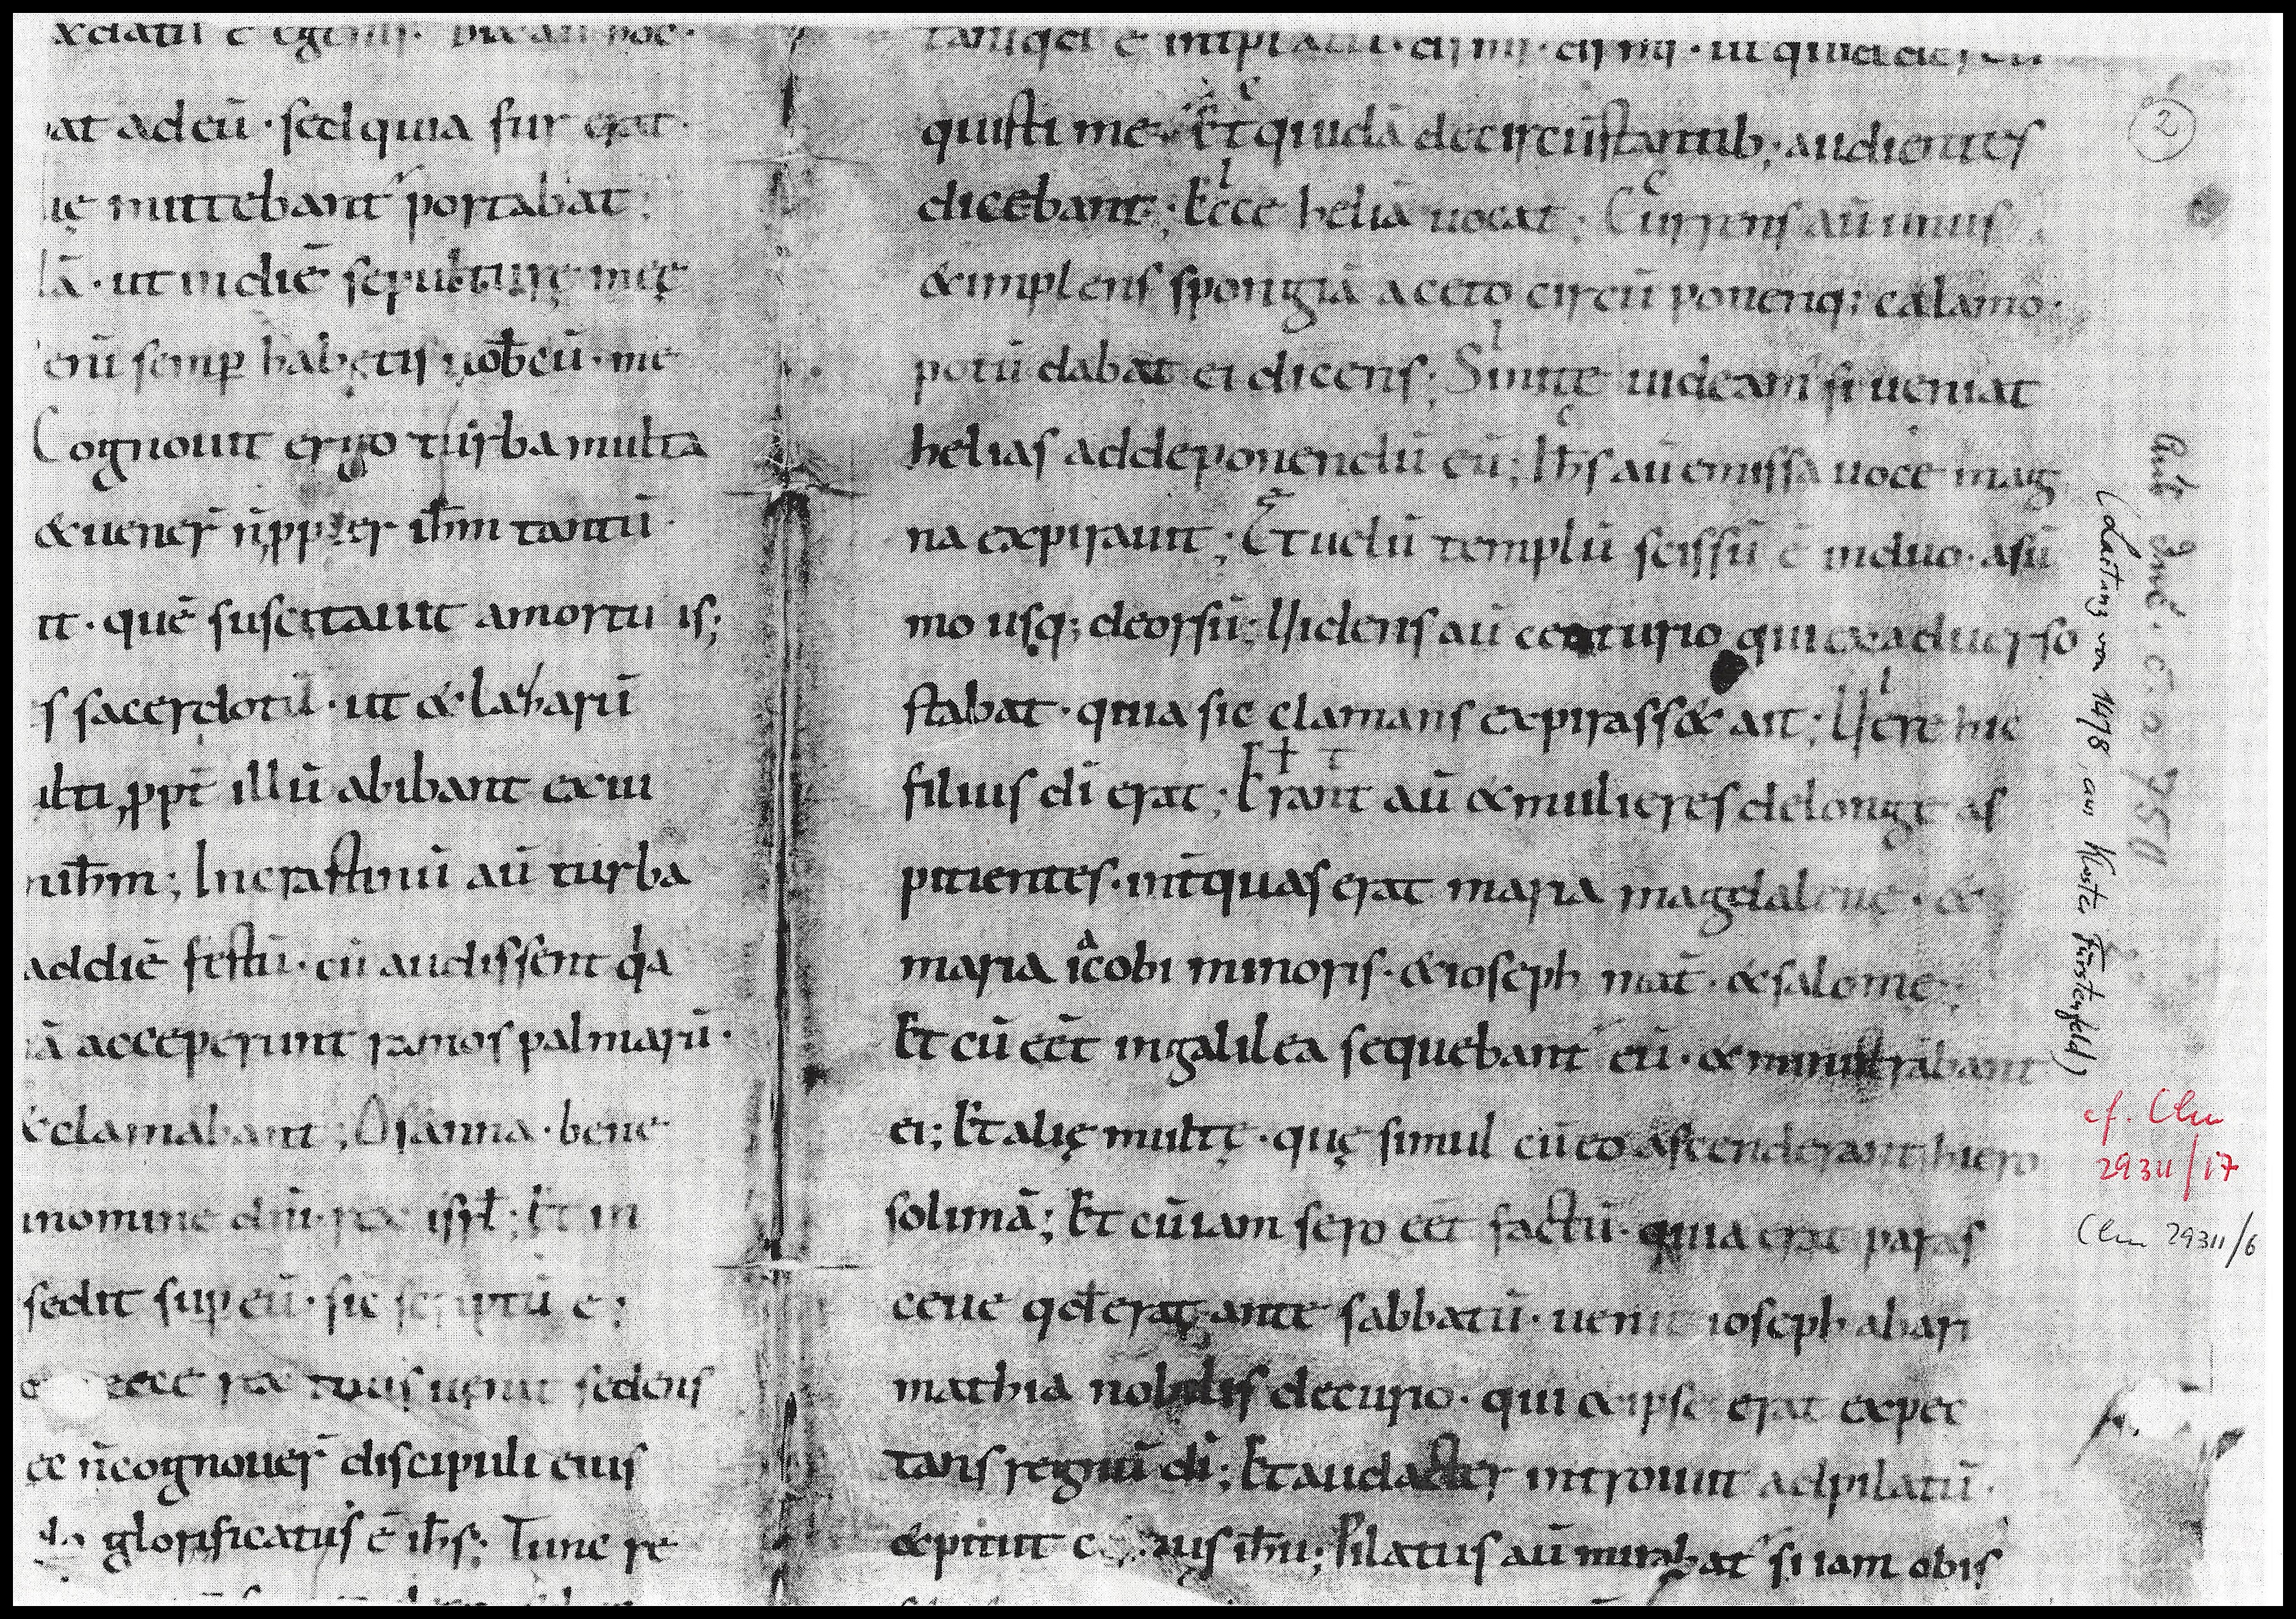 &datū ē egenis. Dix̄ aū hoc.
at adeū. sed quia fur erat.
ię mittebant portabat.
lā. ut indiē sepulturę męę
enī semp habetis uobcū. me
Cognouit ergo turba multa
& uener̄ n̄ ppter ih̄m tantū.
it. quē suscitauit amortuis;
s sacerdotū. ut & lazarū
ulti, ppt̄ illū abibant exiu
nih̄m; Incrastinū aū turba
addiē festū. cū audissent qa
iā acceperunt ramos palmarū.
&clamabant; Osanna. bene
inomine dn̄i. rex isrl̄; Et in
sedit sup eū. sic scriptū ē;
ecce rex tuus uenit sedens
ec n̄cognouer̄ discipuli eius
do glorificatus ē ih̄s. Tunc re
quisti me. Et quidā decircūstantib; audientes
dicebant; Ecce heliā uocat; Currens aū unus
&implens spongiā aceto circū ponenq; calamo.
potū dabat ei dicens; Sinite uideam si ueniat
helias addeponendū eū; Ih̄s aū emissa uoce mag
na expirauit; Et uelū templū scissū ē induo. asū
mo usq; deorsū; Uidens aū centurio qui exaduerso
stabat. quia sic clamans expirass& ait; Uere hic
filius dī erat; Erant aū &mulieres delonge as
picientes. int̄quas erat maria magdalenę. &
maria iacobi minoris. &ioseph mat̄. &salome;
Et cū eēt ingalilea sequebant eū. &ministrabant
ei; Et alię multę. quę simul cūeo ascenderant hiero
solimā; Et cū iam sero eēt factū. quia erat paras
ceue qđ erat ante sabbatū. uenit ioseph abari
mathia nobilis decurio. qui &ipse erat expec
tans regnū dī; Et audacter introiuit adpilatū.
&petiit corpus ih̄u; Pilatus aū mirabat si iam obis
2
(Lastung von 1478, aus Kloster Fürstenfeld)
cf. Clm
29311/17
Clm 29311/6